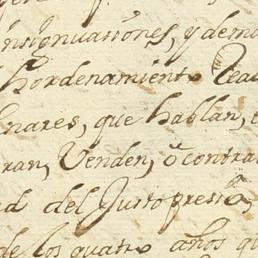 insignuasiónes, y demá
Hordenamiento Real
enares, que hablan, e
ran, Venden, ò contra
ad del Justo presio,
de los quatro años qu